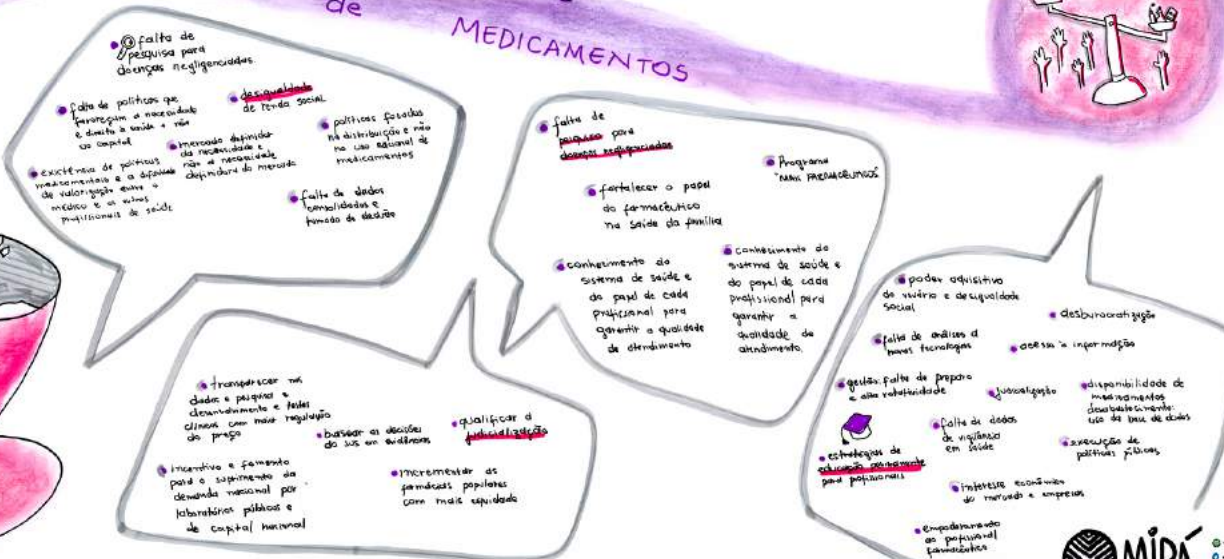 de
MEDICAMENTOS
falta de
pesquisa para
doenças negligenciadas
falta de políticas que
favoreçam a necessidade
e direito à saúde e não
ao capital
desigualdade
de renda social
mercado definidor
da necessidade e
não a necessidade
definidora do mercado
políticas focadas
na distribuição e não
no uso racional de
medicamentos
existência de políticas
medicamentais e a
de valorização entre o
médico e os outros
profissionais de saúde
falta de dados
consolidados e
tomada de decisão
falta de
pesquisa para
doenças negligenciadas
Programa
"MAIS FARMACÊUTICOS"
fortalecer o papel
do farmacêutico
na saúde da família
conhecimento do
sistema de saúde e
do papel de cada
profissional para
garantir a qualidade
de atendimento
conhecimento do
sistema de saúde e
do papel de cada
profissional para
garantir a
qualidade do
atendimento
transparecer nos
dados e pesquisa e
desenvolvimento e testes
clínicos com maior regulação
do preço
basear as decisões
do sus em evidências
qualificar a
judicialização
incentivo e fomento
para o suprimento da
demanda nacional por
laboratórios públicos e
de capital nacional
incrementar as
farmácias populares
com mais equidade
poder aquisitivo
do usuário e desigualdade
social
desburocratização
falta de análises d
novas tecnologias
acesso à informação
gestão: falta de preparo
e alta rotatividade
judicialização
disponibilidade de
medicamentos
desabastecimento:
uso da base de dados
estratégias de
educação permanente
para profissionais
falta de dados
de vigilância
em saúde
execução de
políticas públicas
interesse econômico
do mercado e empresas
empoderamento
ao profissional
farmacêutico
MIDÁ